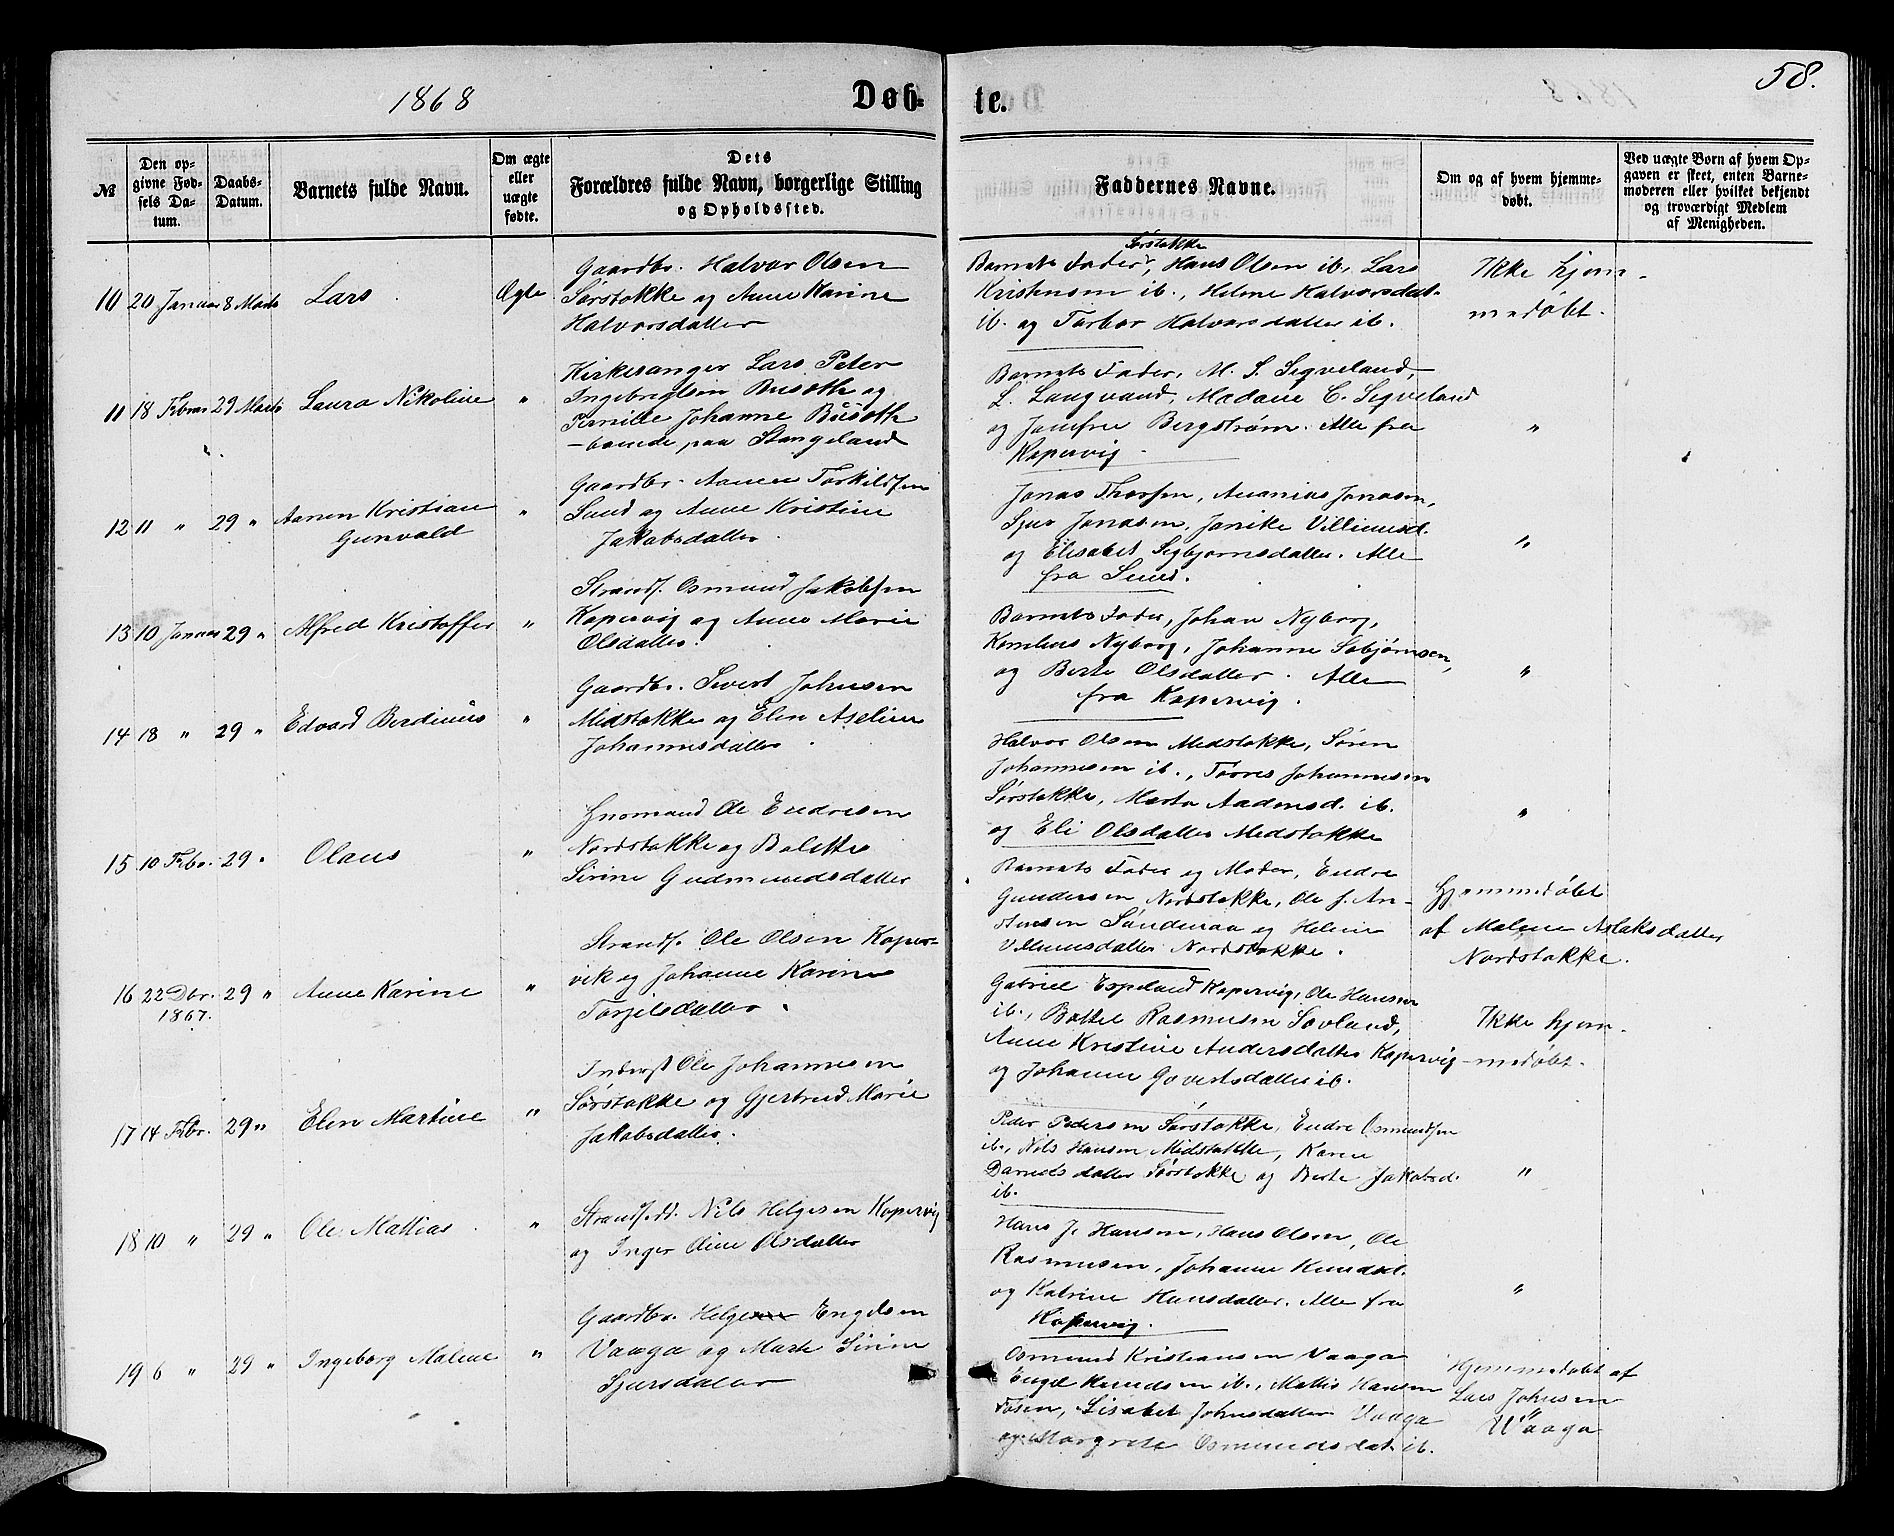 1868
Døb-
te.
58.
№
Den op-
givne Fød-
sels Da-
tum.
Daabs-
Datum.
Barnets fulde Navn.
Om ægte
eller
uægte
fødte.
Dets
Forældres fulde Navn, borgerlige Stilling
og Opholdssted.
Faddernes Navne.
Om og af hvem hjemme-
døbt.
Ved uægte Børn af hvem Op-
gaven er skeet, enten Barne-
moderen eller hvilket bekjendt
og troværdigt Medlem
af Menigheden.
10 20 Januar 8 Marts Lars Ægte
Gaardbr. Halvor Olsen
Sørstokke og Anne Karine
Halvorsdatter
Sørstokke
Barnets Fader, Hans Olsen ib., Lars
Kristensen ib., Helene Halvorsdat.
ib. og Torbor Halvorsdatter ib.
Ikke hjem-
medøbt.
11 18 Febrar 29 Marts Laura Nikoline "
Kirkesanger Lars Peter
Ingebrigtsen Busoth og
Emilie Johanne Busoth
- boende paa Stangeland
Barnets Fader, M. S. Seqveland,
L. Langvand, Madame C. Seqveland
og Jomfru Bergstrøm. Alle fra
Kopervig.
"
12 11 " 29 " Aanen Kristian
Gunvald "
Gaardbr. Aanen Torkildsen
Sund og Anne Kristine
Jakobsdatter.
Jonas Thorsen, Ananias Jonasen,
Sjur Jonasen, Janike Villiumsd.
og Elisabet Segbjørnsdatter. Alle
fra Sund.
"
13 10 Januar 29 " Alfred Kristoffer "
Strands. Osmund Jakobsen
Kopervig og Anne Marie
Olsdatter.
Barnets Fader, Johan Nyborg,
Kornelius Nyborg, Johanne Sebjørnsen,
og Berte Olsdatter. Alle
fra Kopervig.
"
14 18 " 29 " Edvard Berdinius "
Gaardbr. Sivert Johnsen
Midstokke og Elen Aseline
Johannesdatter.
Halvor Olsen Medstokke, Søren
Johannesen ib., Torres Johannesen
Sørstokke, Marta Aadensd. ib.
og Eli Olsdatter Medstokke
"
15 10 Febr. 29 " Olaus "
Husmand Ole Endresen
Nordstokke og Bolette
Sirine Gudmundsdatter
Barnets Fader og Moder, Endre
Gundersen Nordstokke, Ole J. An-
stensen Søndenaa og Helene
Villumsdatter Nordstokke.
Hjemmedøbt
af Malene Aslaksdatter
Nordstokke.
16 22 Dbr. 29 " Anne Karine "
1867.
Strands. Ole Olsen Koper-
vik og Johanne Karine
Torjelsdatter.
Gabriel Espeland Kopervig, Ole Hansen
ib., Bottel Rasmusen Sovland,
Anne Kristine Andersdatter Kopervig
og Johanne Govertsdatter ib.
Ikke hjem-
medøbt.
17 14 Febr. 29 " Elen Martine "
Inderst Ole Johannesen
Sørstokke og Gjertrud Marie
Jakobsdatter.
Peder Pedersen Sørstokke, Endre Osmundsen
ib., Nils Hansen Midstokke, Karen
Danielsdatter Sørstokke og Berte Jakobsd.
ib.
"
18 10 " 29 " Ole Mathias "
Strandsidd. Nils Helgesen Kopervig
og Inger Aine Olsdatter
Hans J. Hansen, Hans Olsen, Ole
Rasmusen, Johanne Knudsd.
og Katrine Hansdatter. Alle fra
Kopervig.
"
19 6 " 29 " Ingeborg Malene "
Gaardbr. Helge Engelsen
Vaaga og Marte Sirine
Sjursdatter
Osmund Kristiansen Vaaga
Engel Knudsen ib., Mattis Hansen
Fosen, Lisabet Johnsdatter Vaaga
og Margrete Osmundsdat. ib.
Hjemmedøbt af
Lars Johnsen
Vaaga